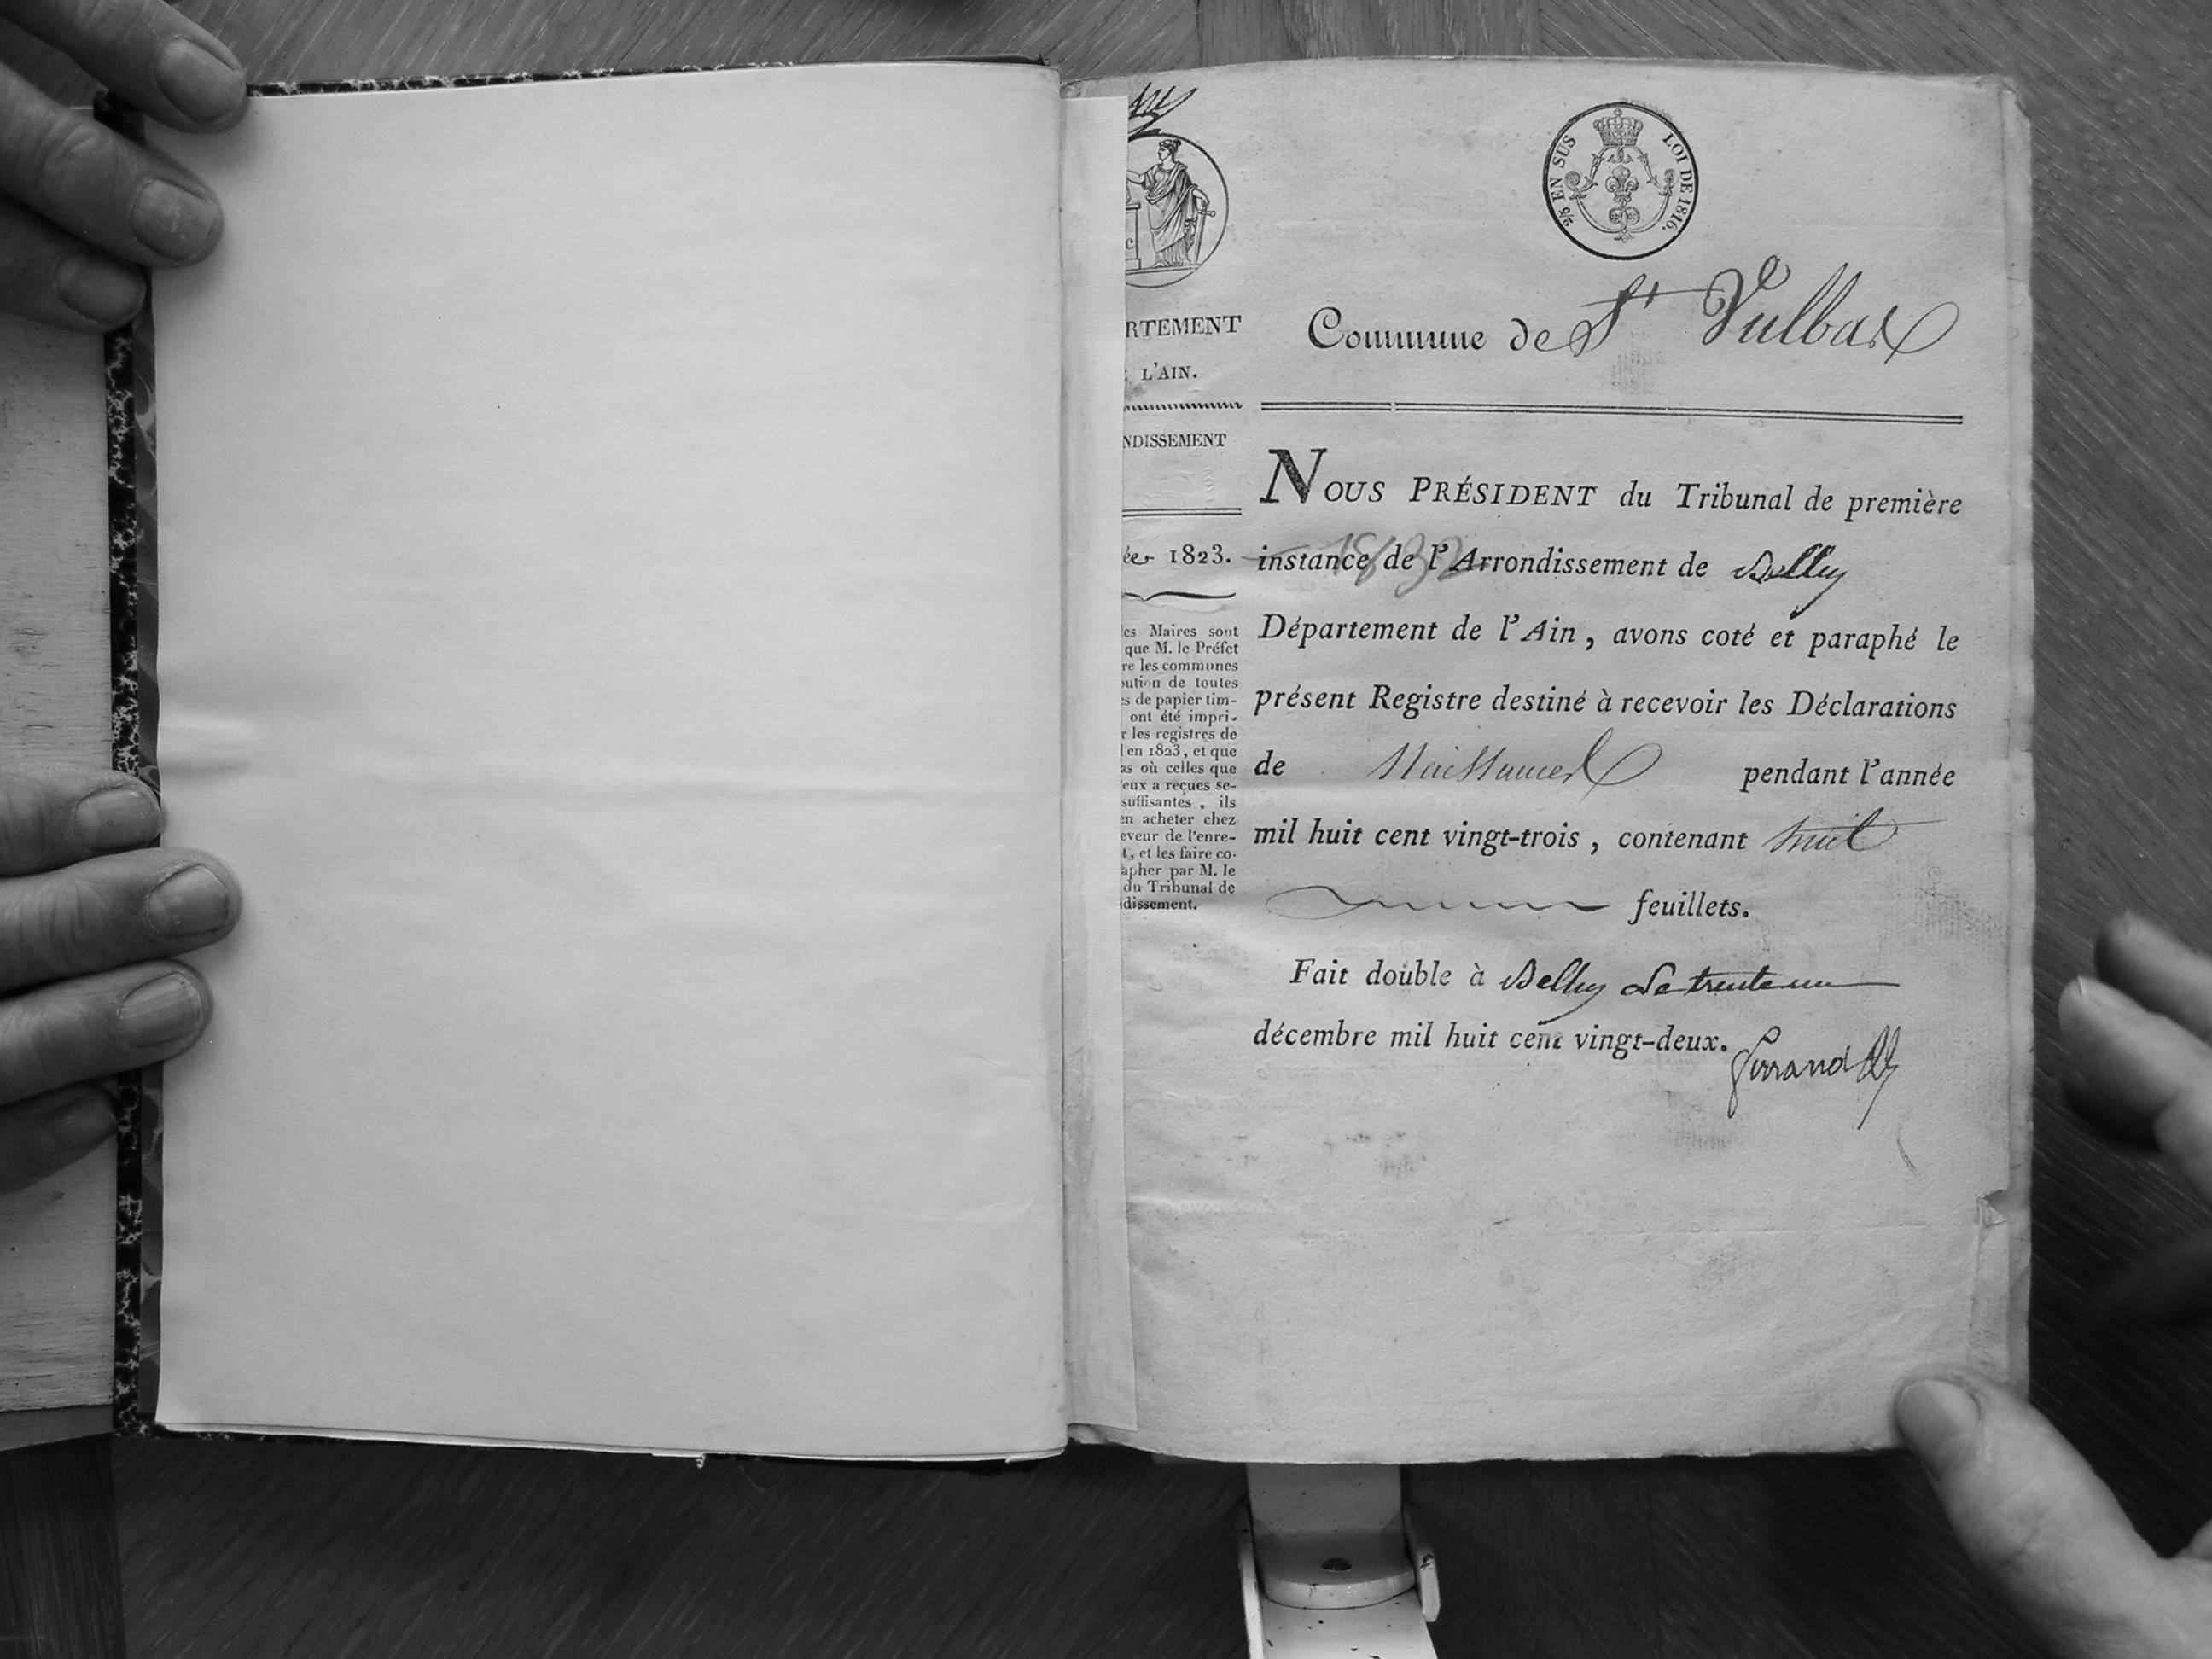 2/5 EN SUS LOI DE 1816.
RTEMENT
L'AIN.
NDISSEMENT
ée 1823. - 1832
les Maires sont
que M. le Préfet
re les communes
bution de toutes
s de papier tim-
ont été impri-
r les registres de
l en 1823, et que
as où celles que
'eux a reçues se-
suffisantes, ils
en acheter chez
eveur de l'enre-
t, et les faire co-
apher par M. le
du Tribunal de
dissement.
Commune de St Vulbas
NOUS PRÉSIDENT du Tribunal de première
instance de l'Arrondissement de Belley
Département de l'Ain, avons coté et paraphé le
présent Registre destiné à recevoir les Déclarations
de Naissances pendant l'année
mil huit cent vingt-trois, contenant huit
feuillets.
Fait double à Belley Le trente un
décembre mil huit cent vingt-deux.